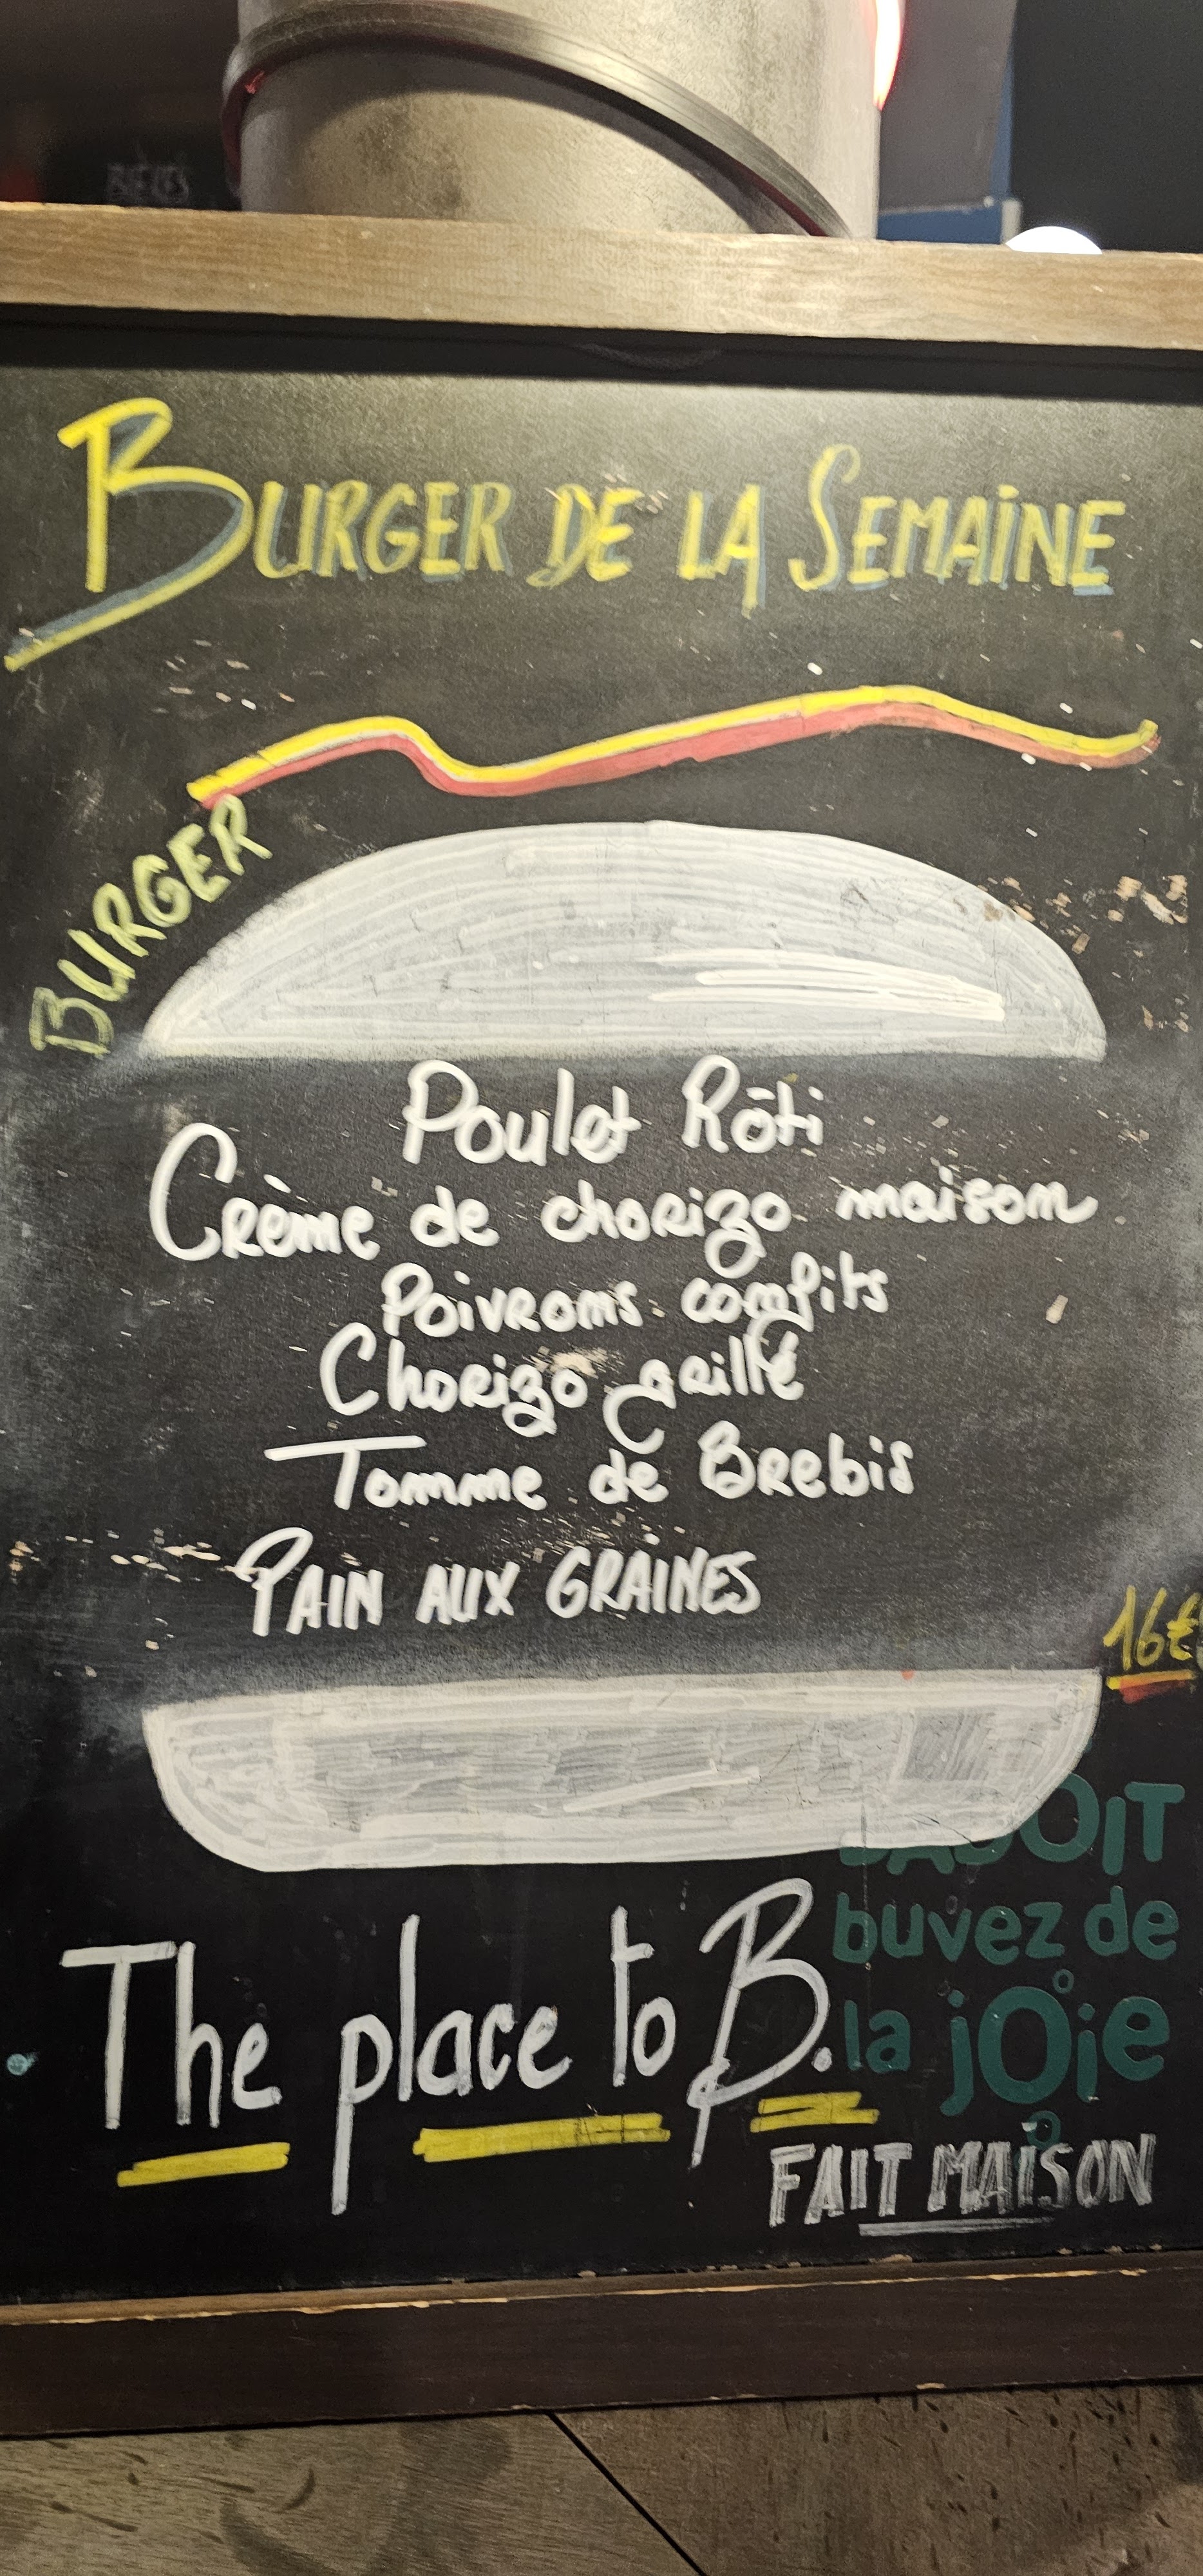 BURGER DE LA SEMAINE
BURGER
Poulet Rôti
Crème de chorizo maison
Poivrons confits
Chorizo grillé
Tomme de Brebis
PAIN AUX GRAINES
16€
BADOIT
buvez de
la joie
The place to B.
FAIT MAISON